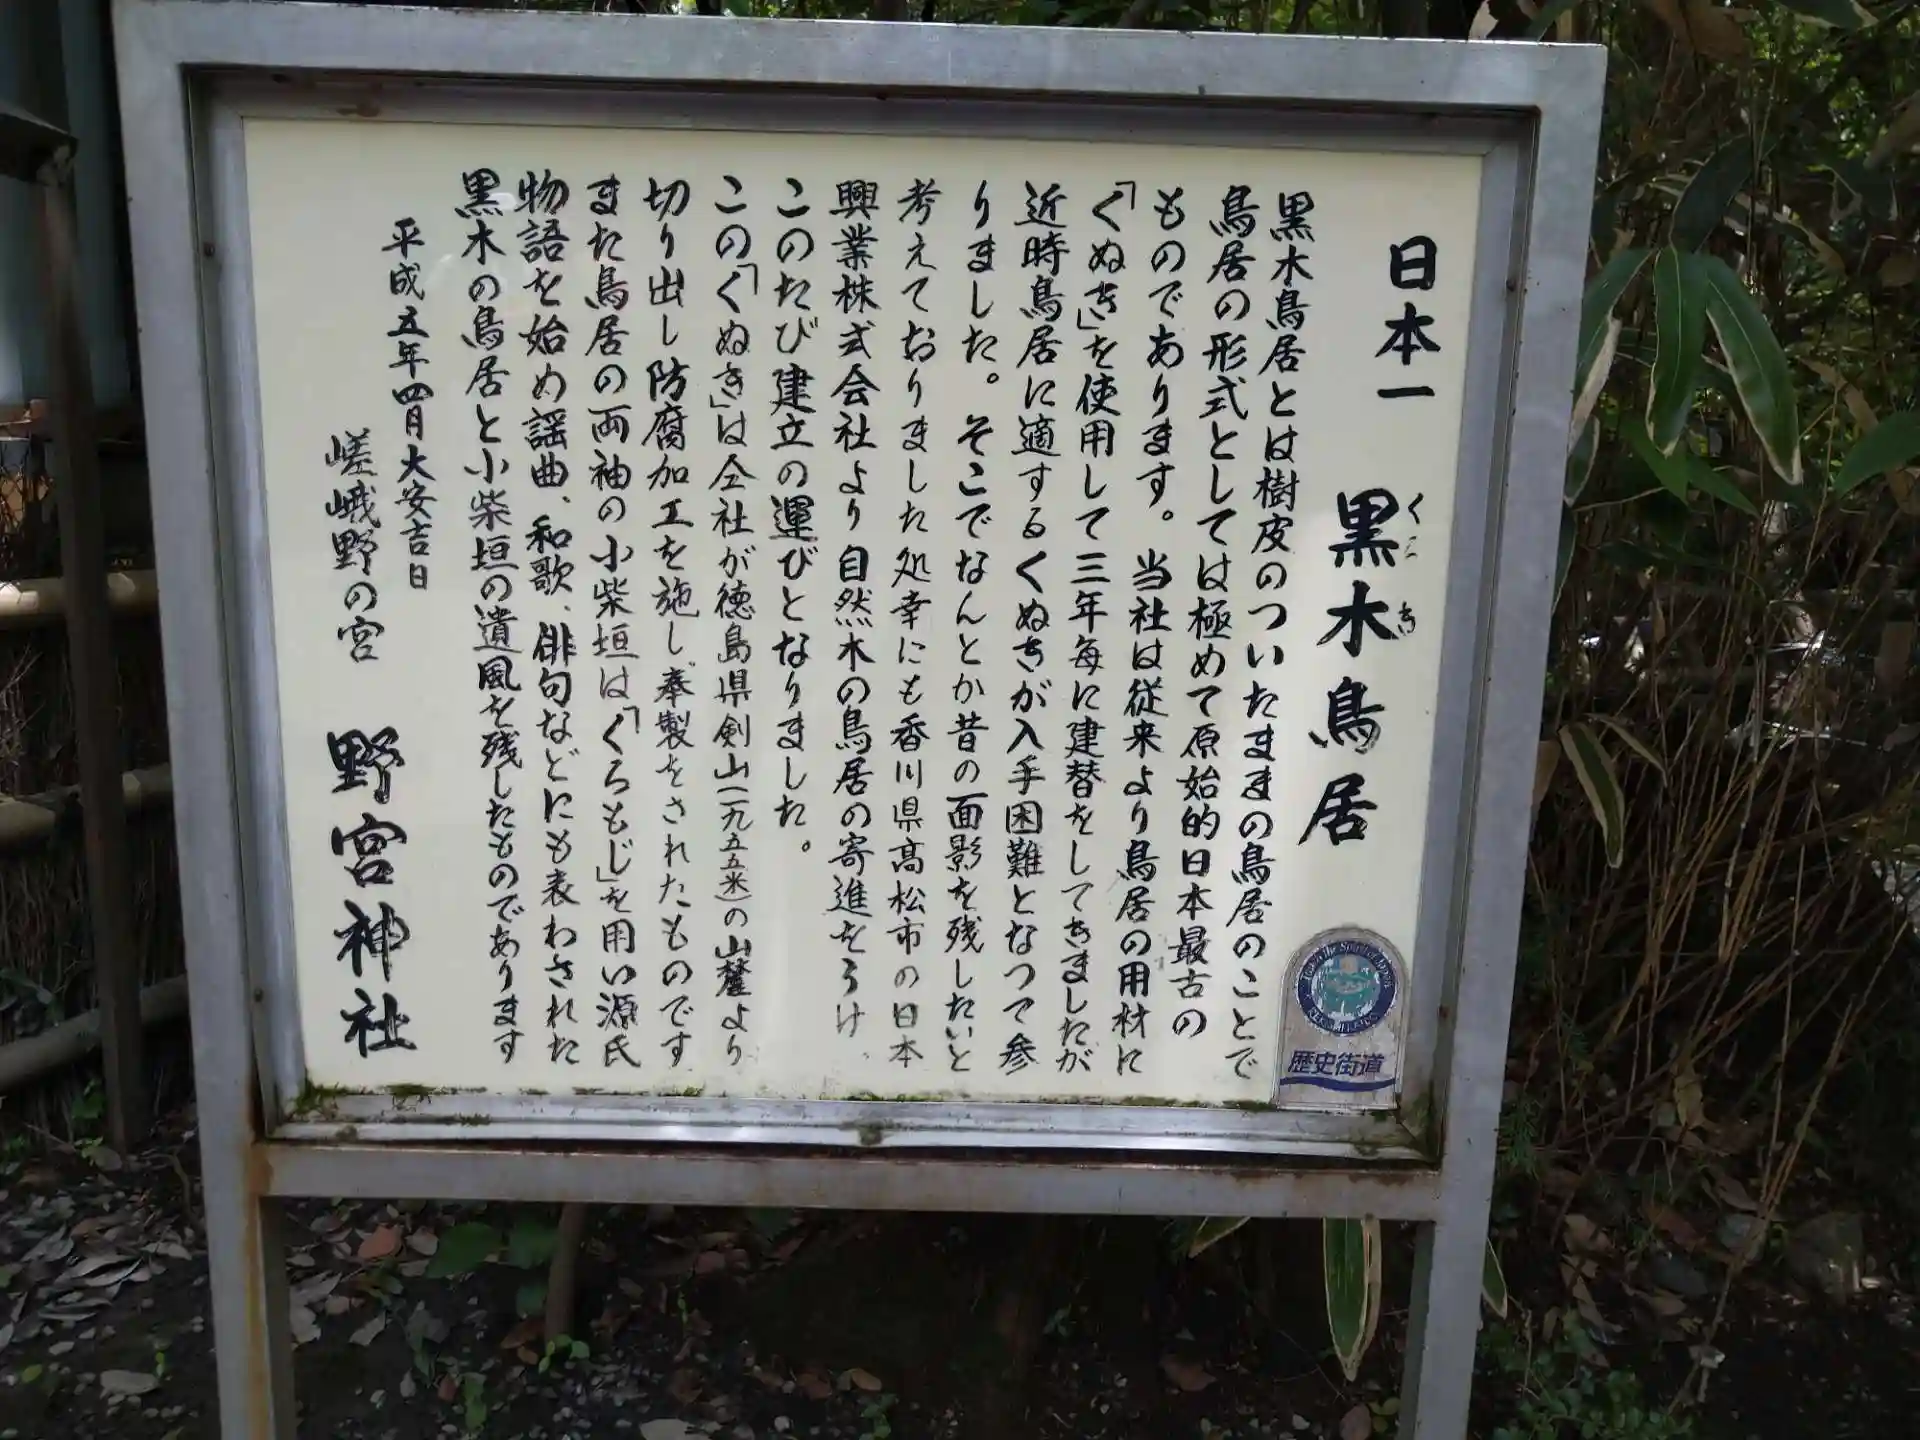 日本一 黒木鳥居
くろ き
黒木鳥居とは樹皮のついたままの鳥居のことで
鳥居の形式としては極めて原始的日本最古の
ものであります。当社は従来より鳥居の用材に
「くぬぎ」を使用して三年毎に建替をしてきましたが
近時鳥居に適するくぬぎが入手困難となつて参
りました。そこでなんとか昔の面影を残したいと
考えておりました処幸にも香川県高松市の日本
興業株式会社より自然木の鳥居の寄進をうけ
このたび建立の運びとなりました。
この「くぬぎ」は仝社が徳島県剣山(一九五五米)の山麓より
切り出し防腐加工を施し奉製をされたものです
また鳥居の両袖の小柴垣は「くろもじ」を用い源氏
物語を始め謡曲、和歌、俳句などにも表わされた
黒木の鳥居と小柴垣の遺風を残したものであります
平成五年四月大安吉日
嵯峨野の宮 野宮神社
REKISHI KAIDO
歴史街道